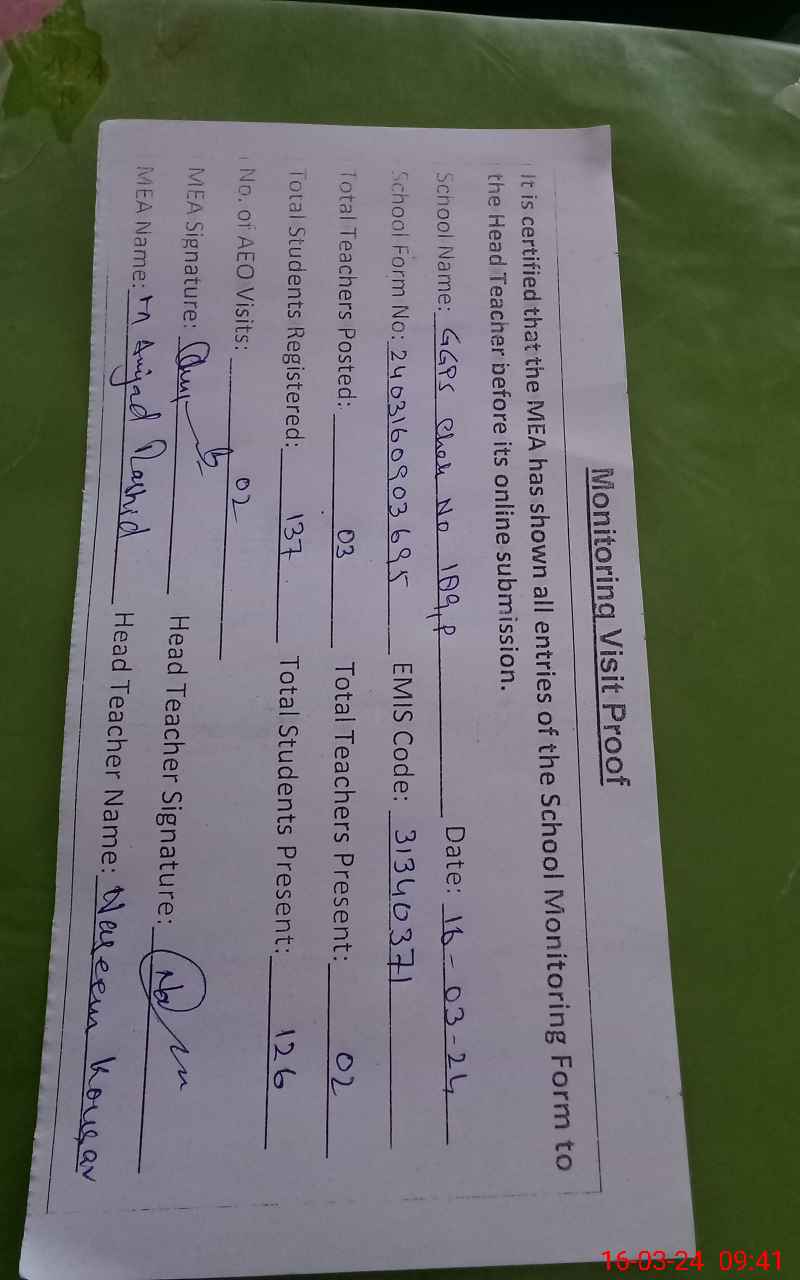 Monitoring Visit Proof
It is certified that the MEA has shown all entries of the School Monitoring Form to
the Head Teacher before its online submission.
School Name: GGPS Chak No 109,P Date: 16-03-24
School Form No: 2403160903695 EMIS Code: 31340371
Total Teachers Posted: 03 Total Teachers Present: 02
Total Students Registered: 137 Total Students Present: 126
No. of AEO Visits: 02
MEA Signature: Head Teacher Signature:
MEA Name: M Amjad Rashid Head Teacher Name: Naseem Kousar
16-03-24 09:41